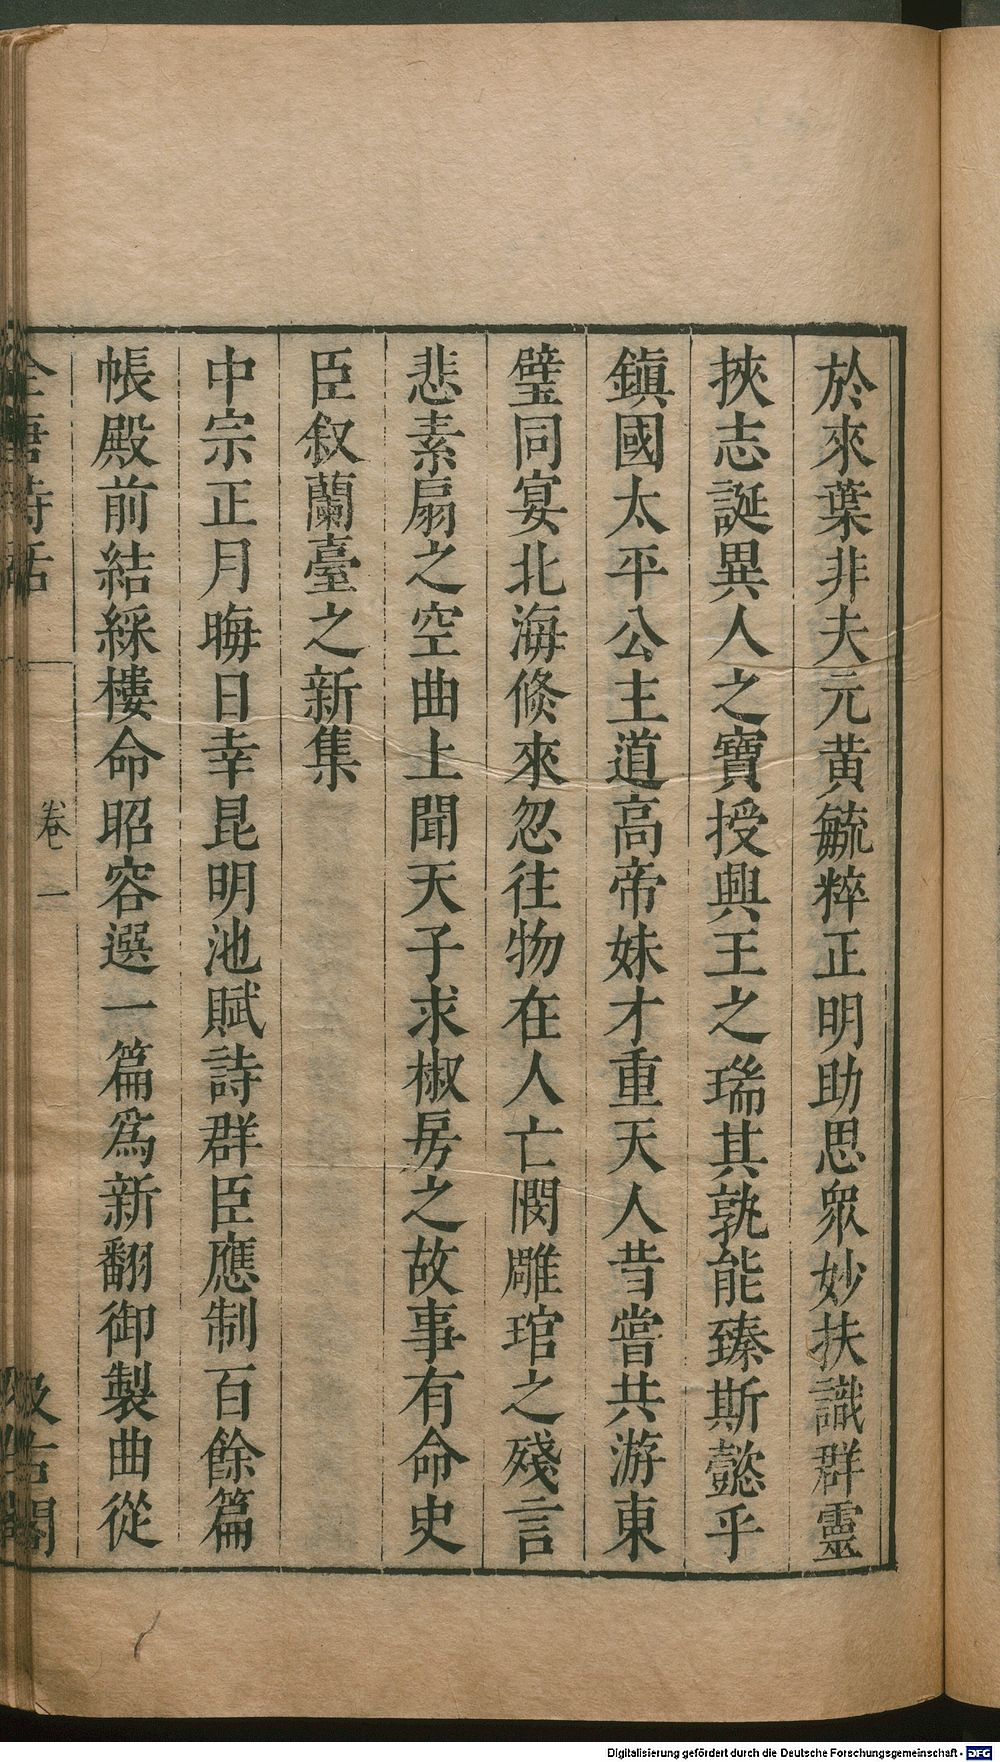 於來葉非夫元黄毓粹正明助思衆妙扶識群靈
挾志誕異人之寶授興王之瑞其孰能臻斯懿乎
鎭國太平公主道高帝妹才重天人昔嘗共游東
璧同宴北海倐來忽往物在人亡憫雕琯之殘言
悲素扇之空曲上聞天子求椒房之故事有命史
臣叙蘭臺之新集
中宗正月晦日幸昆明池賦詩群臣應制百餘篇
帳殿前結綵樓命昭容選一篇爲新翻御製曲從
全唐詩話
卷一
汲古閣
Digitalisierung gefördert durch die Deutsche Forschungsgemeinschaft - DFG